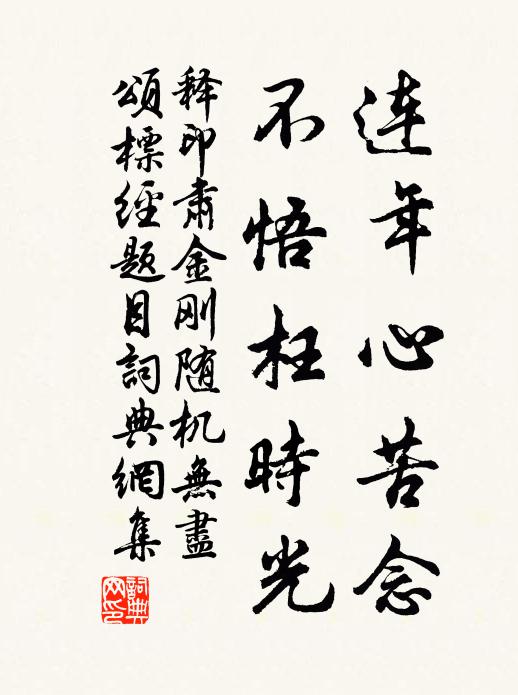 連年心苦念
不悟枉時光
释印肅金刚随机無盡
頌標經題目詞典網集
詞典网印